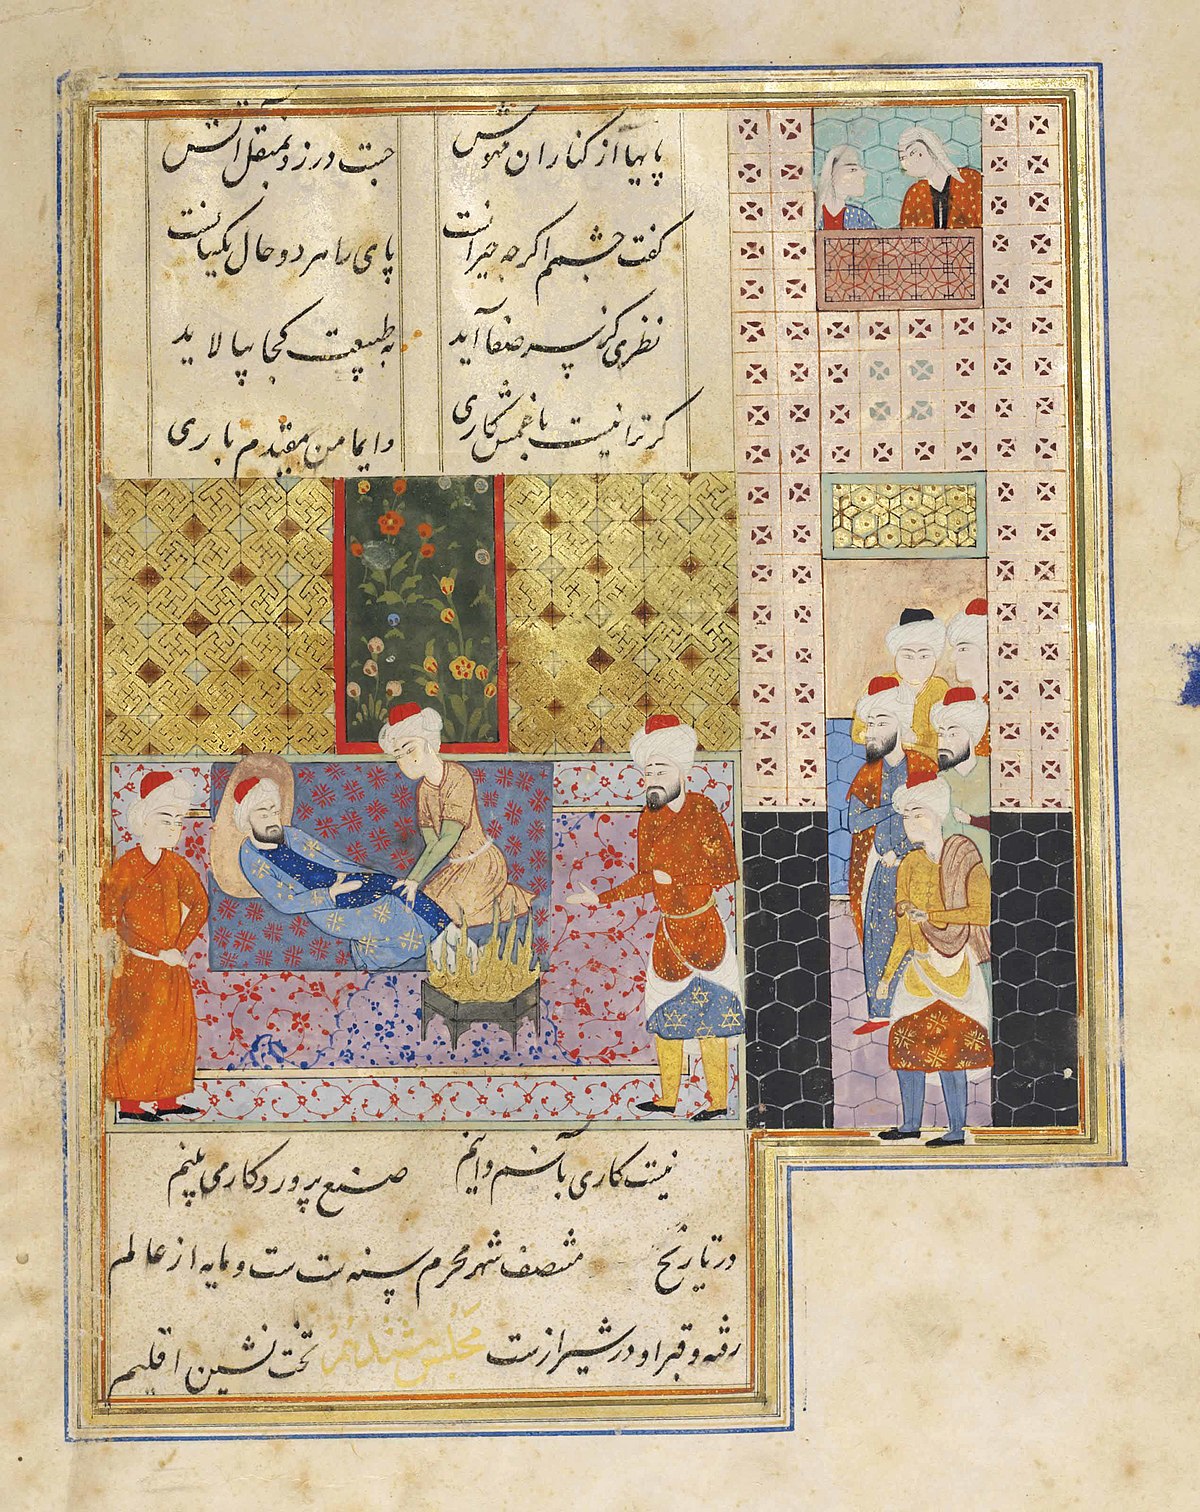 پایها از کنار آن مهوش جست در زد بمنقل آتش
گفت چشمم اگر چه حیرانست پای را هر دو حال یکسانست
نظری کز سر صفا آید به طبیعت کجا بیالاید
گر ترا نیست با غمش کاری دایما من مقیدم باری
نیست کاری بآنم و اینم صنع پروردگار می بینم
در تاریخ منتصف شهر محرم سنه ست ست و مایه از عالم
رفته و قبر او در شیراز ست مجلس تخت نشین اقلیم